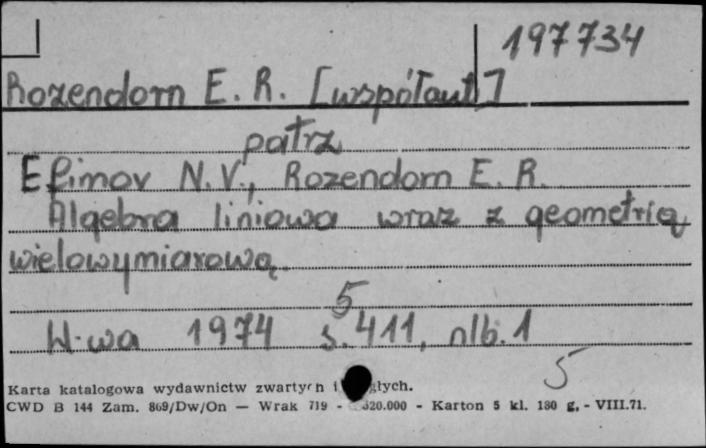 197734
Rozendorn E. R. [współaut]
patrz
Efimov N. V., Rozendorn E. R.
Algebra liniowa wraz z geometrią
wielowymiarową.
5
W-wa 1974 s. 411, nlb. 1
5
Karta katalogowa wydawnictw zwartych i
CWD B 144 Zam. 869/Dw/On — Wrak 719 - 320.000 - Karton 5 kl. 180 g. - VIII.71.